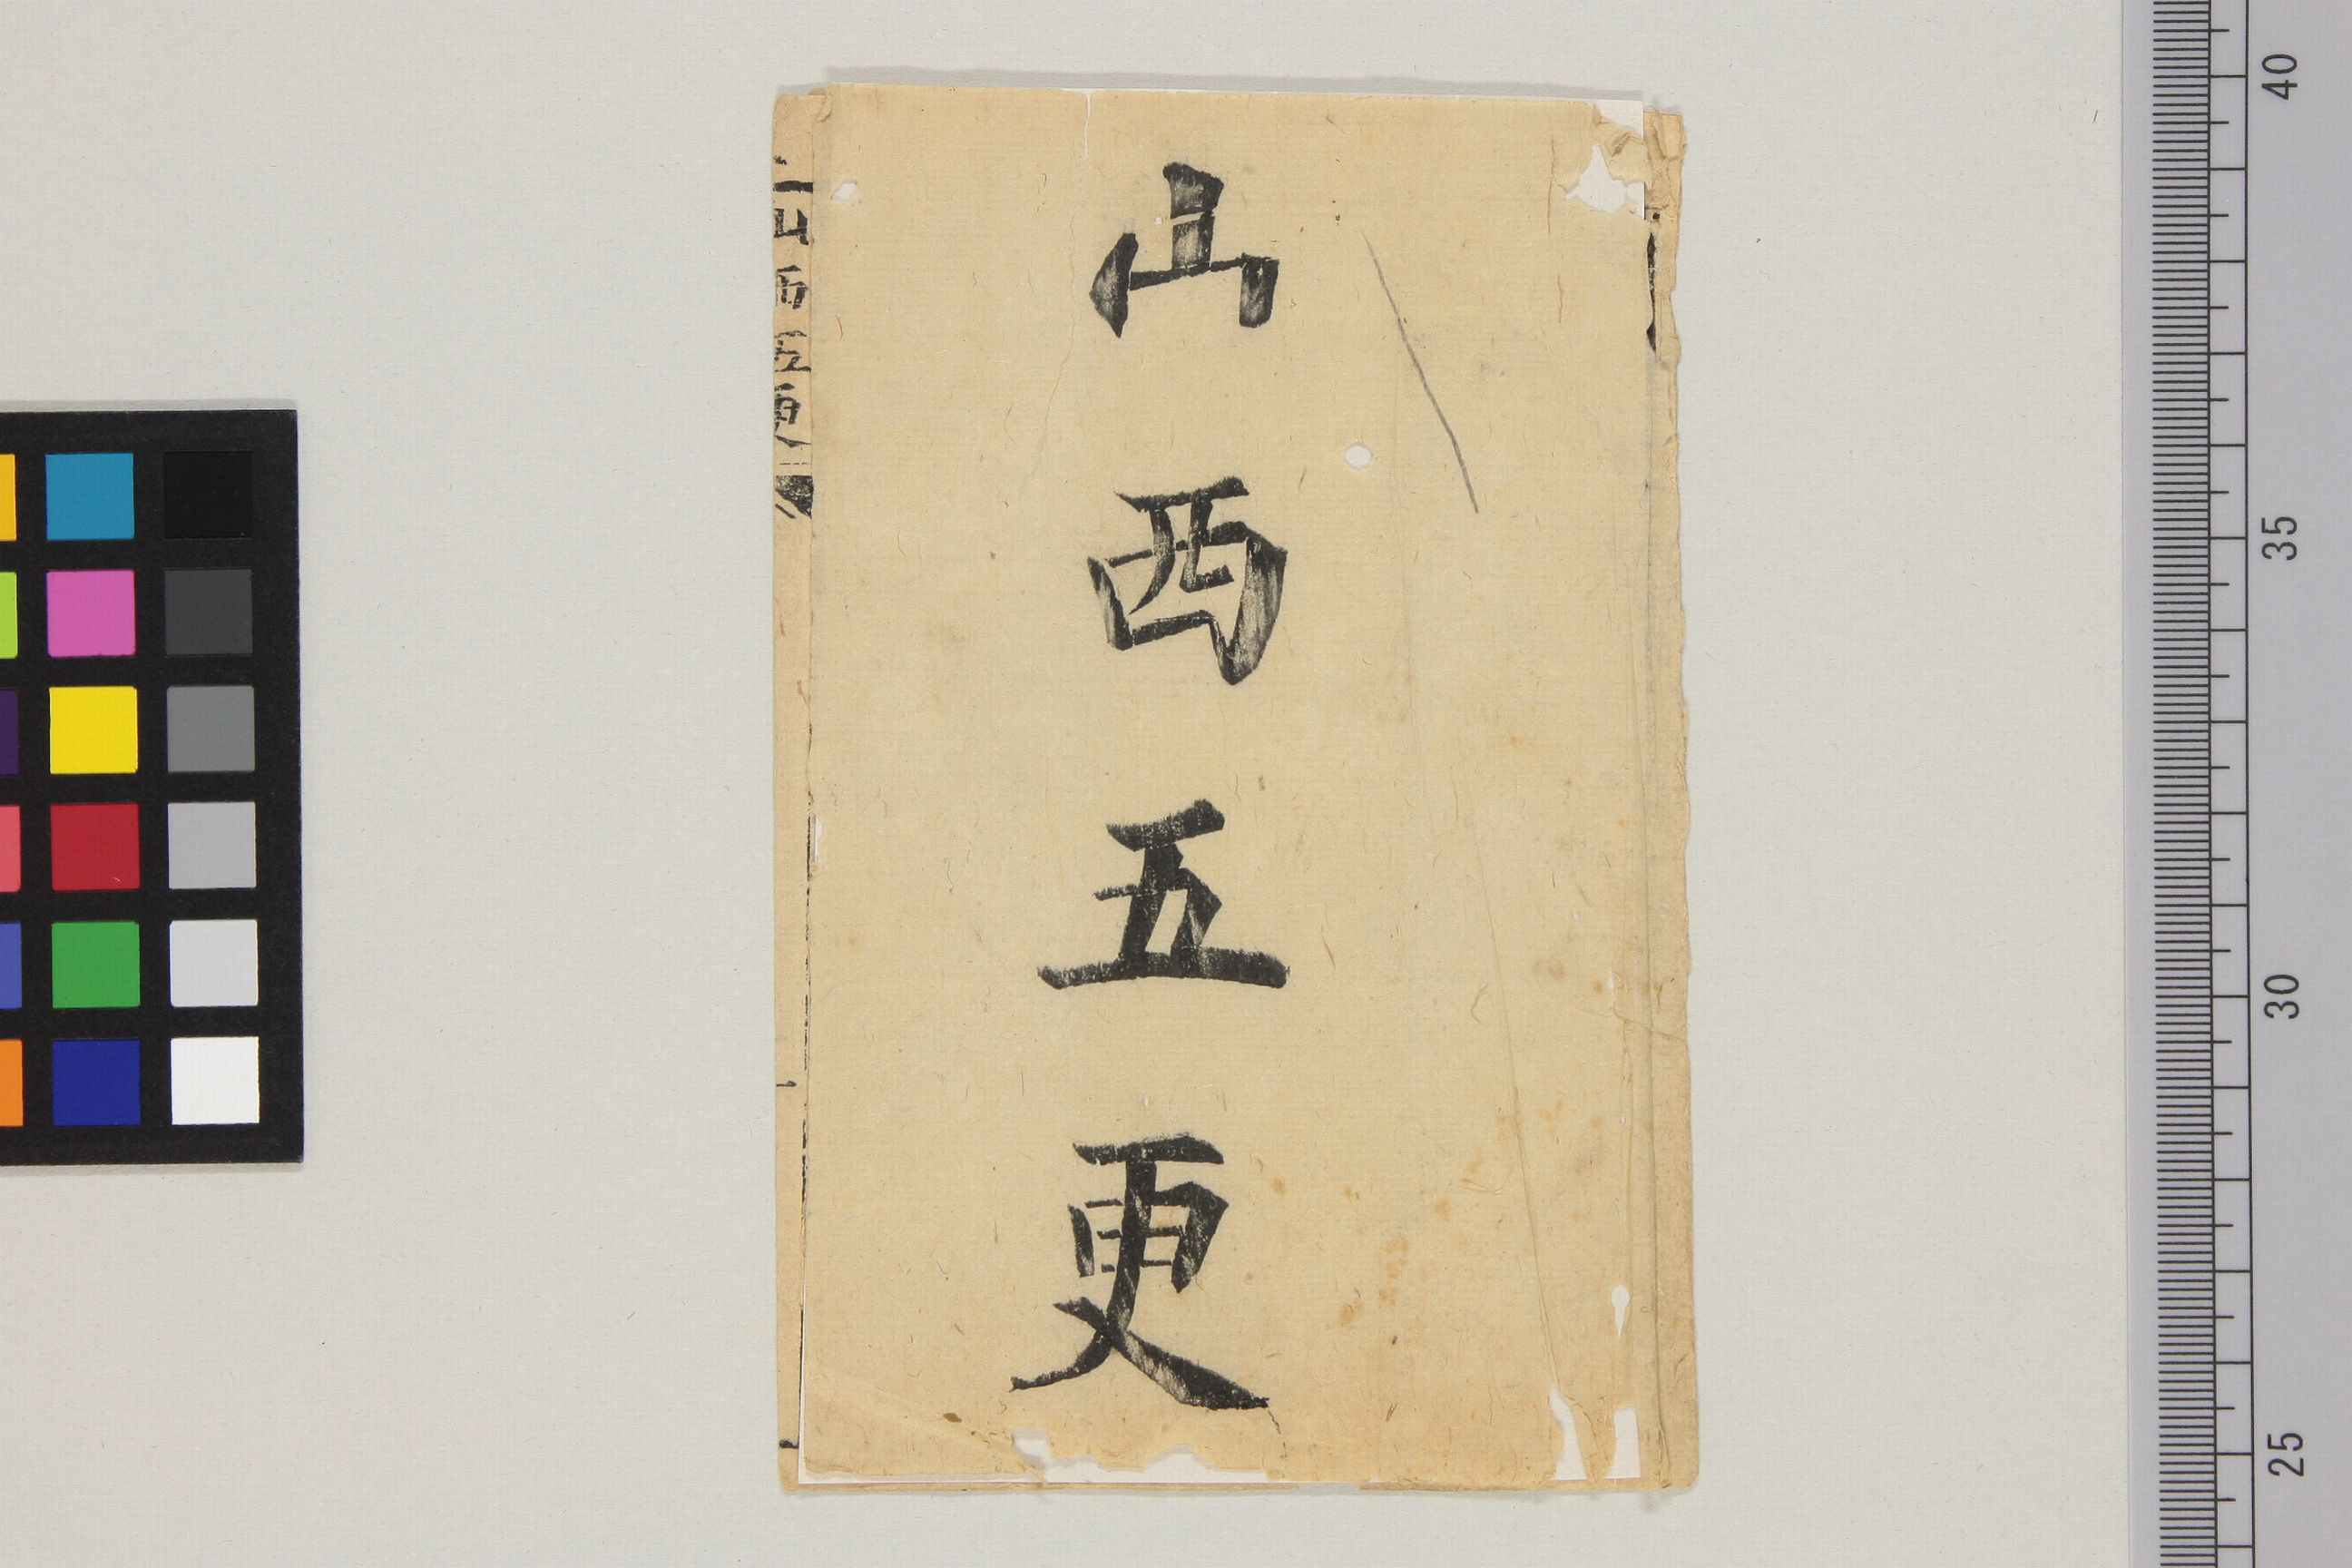 山西五更
山西五更
40
35
30
25